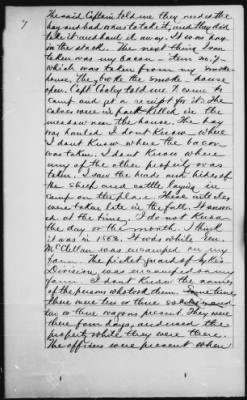 7
The said Captain told me they needed the
hay and had come to take it, and they did
take it and haul it away. It was hay
in the stack. The next thing I saw
taken was my bacon – item no. 7 –
which was taken from my smoke
house. They broke the smoke house
open. Capt Ealey told me I came to
camp and get a receipt for it. The
calves were in part killed in the
meadow near the house. The hay
was hauled I dont know where
I dont know where the bacon
was taken. I dont know where
any of the other property was
taken. I saw the heads and hides of
the sheep and cattle laying in
camp on the place. These articles
were taken late in the fall. It snow
ed at the time, I do not know
the day or the month. I think
it was in 1862. It was while Gen.
McClellan was encamped on my
farm. The picket guard of Sykes
Division was encamped on my
farm. I dont know the names
of the persons who took them.
There were two or three
ten or three wagons present. They were
there four days, and used the
property while they were there.
The officers were present when